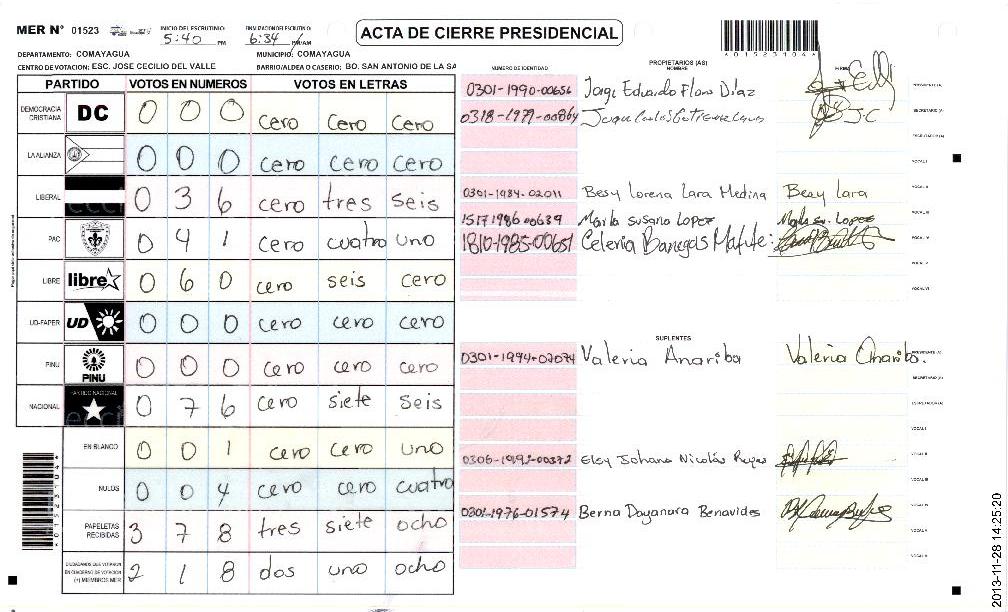 MER N° 01523 INICIO DEL ESCRUTINIO 5:40 PM FINALIZACION DEL ESCRUTINIO 6:34 PM/AM ACTA DE CIERRE PRESIDENCIAL
A01523104
DEPARTAMENTO: COMAYAGUA MUNICIPIO: COMAYAGUA
CENTRO DE VOTACION: ESC. JOSE CECILIO DEL VALLE BARRIO/ALDEA O CASERIO: BO. SAN ANTONIO DE LA SA
PARTIDO VOTOS EN NUMEROS VOTOS EN LETRAS
DEMOCRACIA CRISTIANA DC 0 0 0 cero cero cero
LA ALIANZA 0 0 0 cero cero cero
LIBERAL 0 3 6 cero tres seis
PAC 0 4 1 cero cuatro uno
LIBRE libre 0 6 0 cero seis cero
UD-FAPER UD 0 0 0 cero cero cero
PINU PINU 0 0 0 cero cero cero
NACIONAL PARTIDO NACIONAL 0 7 6 cero siete seis
EN BLANCO 0 0 1 cero cero uno
NULOS 0 0 4 cero cero cuatro
PAPELETAS RECIBIDAS 3 7 8 tres siete ocho
CIUDADANOS QUE VOTARON EN CUADERNO DE VOTACION (+) MIEMBROS MER 2 1 8 dos uno ocho
NUMERO DE IDENTIDAD PROPIETARIOS (AS) NOMBRE FIRMA
0301-1990-00656 Jorge Eduardo Flores Diaz PRESIDENTE (A)
0318-1979-00864 J.C SECRETARIO (A)
ESCRUTADOR (A)
VOCAL I
0301-1984-02011 Besy Lorena Lara Medina Besy Lara VOCAL II
1517 1986 00639 Marla susano Lopez Marla su. Lopez VOCAL III
1810-1985-00651 Celenia Banegas Matute VOCAL IV
VOCAL V
VOCAL VI
SUPLENTES
0301-1994-02074 Valeria Anariba Valeria Anariba. PRESIDENTE (A)
SECRETARIO (A)
ESCRUTADOR (A)
VOCAL I
0306-1992-00372 Elsy Johana Nicolás Reyes VOCAL II
VOCAL III
0301-1976-01574 Berna Dayanara Benavides VOCAL IV
VOCAL V
VOCAL VI
2013-11-28 14:25:20